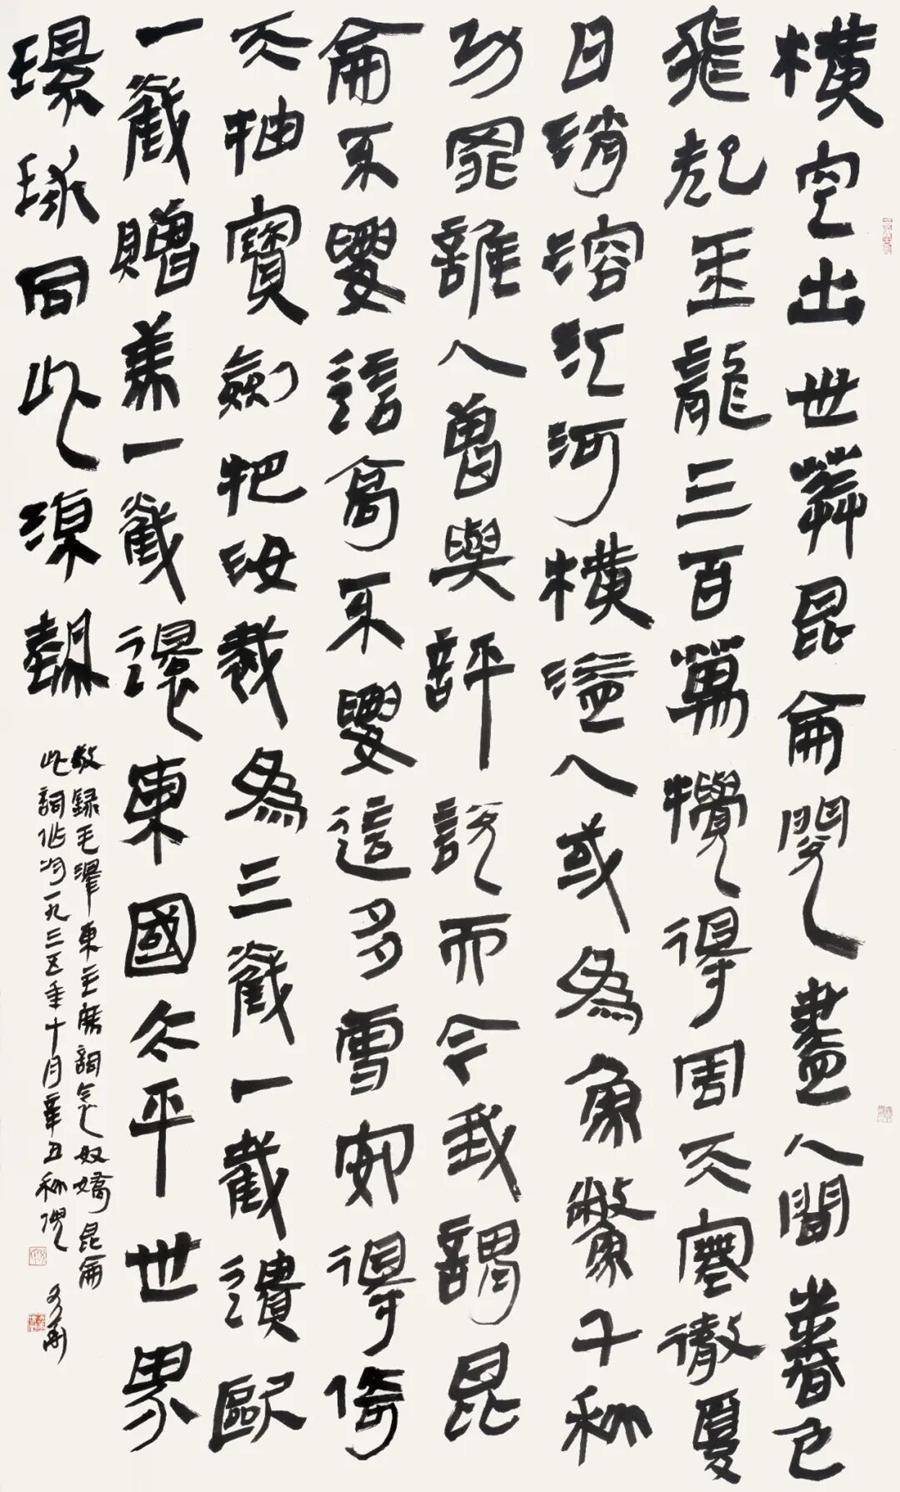 橫空出世莽昆侖閱盡人間春色
飛起玉龍三百萬攪得周天寒徹夏
日消溶江河橫溢人或為魚鱉千秋
功罪誰人曾與評說而今我謂昆
侖不要這高不要這多雪安得倚
天抽寶劍把汝裁為三截一截遺歐
一截贈美一截還東國太平世界
環球同此涼熱
敬録毛澤東主席詞念奴嬌昆侖
此詞作於一九三五年十月辛丑秋